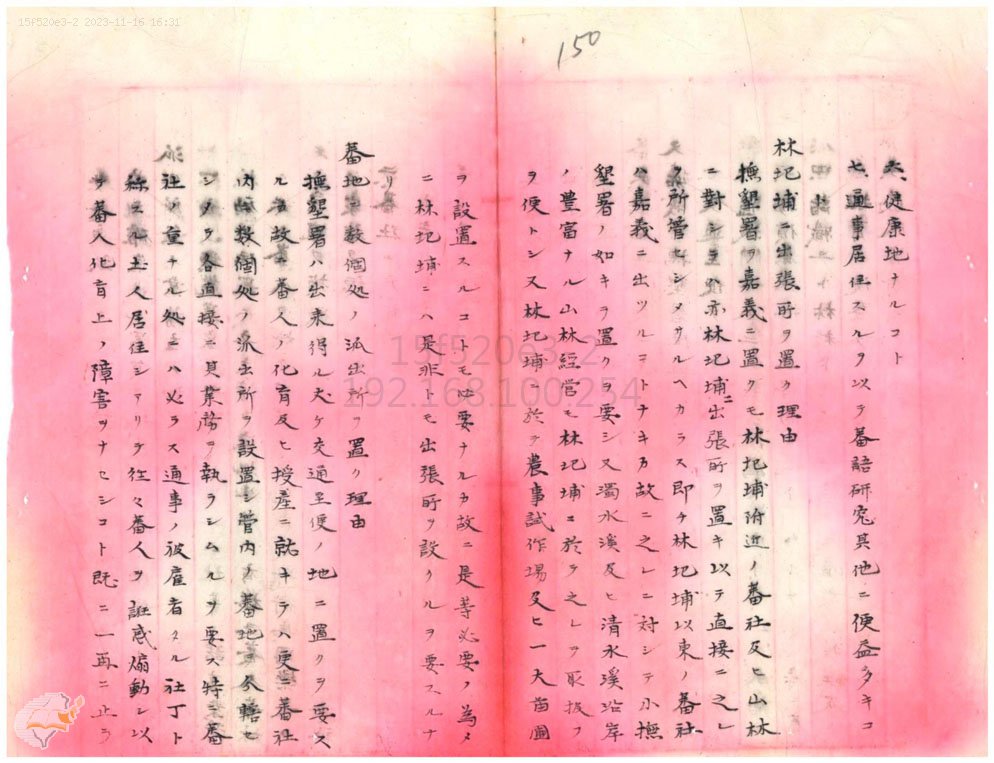 15f520e3-2 2023-11-16 16:31
150
六、健康地ナルコト
七、通事居住スルヲ以テ蕃語研究其他ニ便益多キコ
林圯埔ニ出張所ヲ置ク理由
撫墾署ヲ嘉義ニ置クモ林圯埔附近ノ蕃社及ヒ山林
ニ對シテハ亦林圯埔ニ出張所ヲ置キ以テ直接ニ之レ
ヲ所管セシメサルヘカラス即チ林圯埔以東ノ蕃社
ハ嘉義ニ出ツルコトナキカ故ニ之レニ対シテ小撫
墾署ノ如キヲ置クヲ要シ又濁水溪及ヒ清水溪沿岸
ノ豊富ナル山林経営モ林圯埔ニ於テ之レヲ取扱フ
ヲ便トシ又林圯埔ニ於テ農事試作場及ヒ一大苗圃
ヲ設置スルコトモ必要ナルカ故ニ是等必要ノ為メ
ニ林圯埔ニハ是非トモ出張所ヲ設クルヲ要スルナ
リ
蕃地ニ数個処ノ派出所ヲ置ク理由
撫墾署ハ出来得ル丈ケ交通至便ノ地ニ置クヲ要ス
ル故ニ蕃人ノ化育及ヒ授産ニ就キテハ更ニ蕃社
内ニ数個処ノ派出所ヲ設置シ管内ノ蕃地ヲ分轄セ
シメテ各直接ニ其業務ヲ執ラシムルヲ要ス特ニ蕃
社ノ重ナル処ニハ必ラス通事ノ被雇者タル社丁ト
称スル土人居住シアリテ往々蕃人ヲ誑惑煽動シ以
テ蕃人化育上ノ障害ヲナセシコト既ニ一再ニ止ラ
15f520e3-2
192.168.100.234